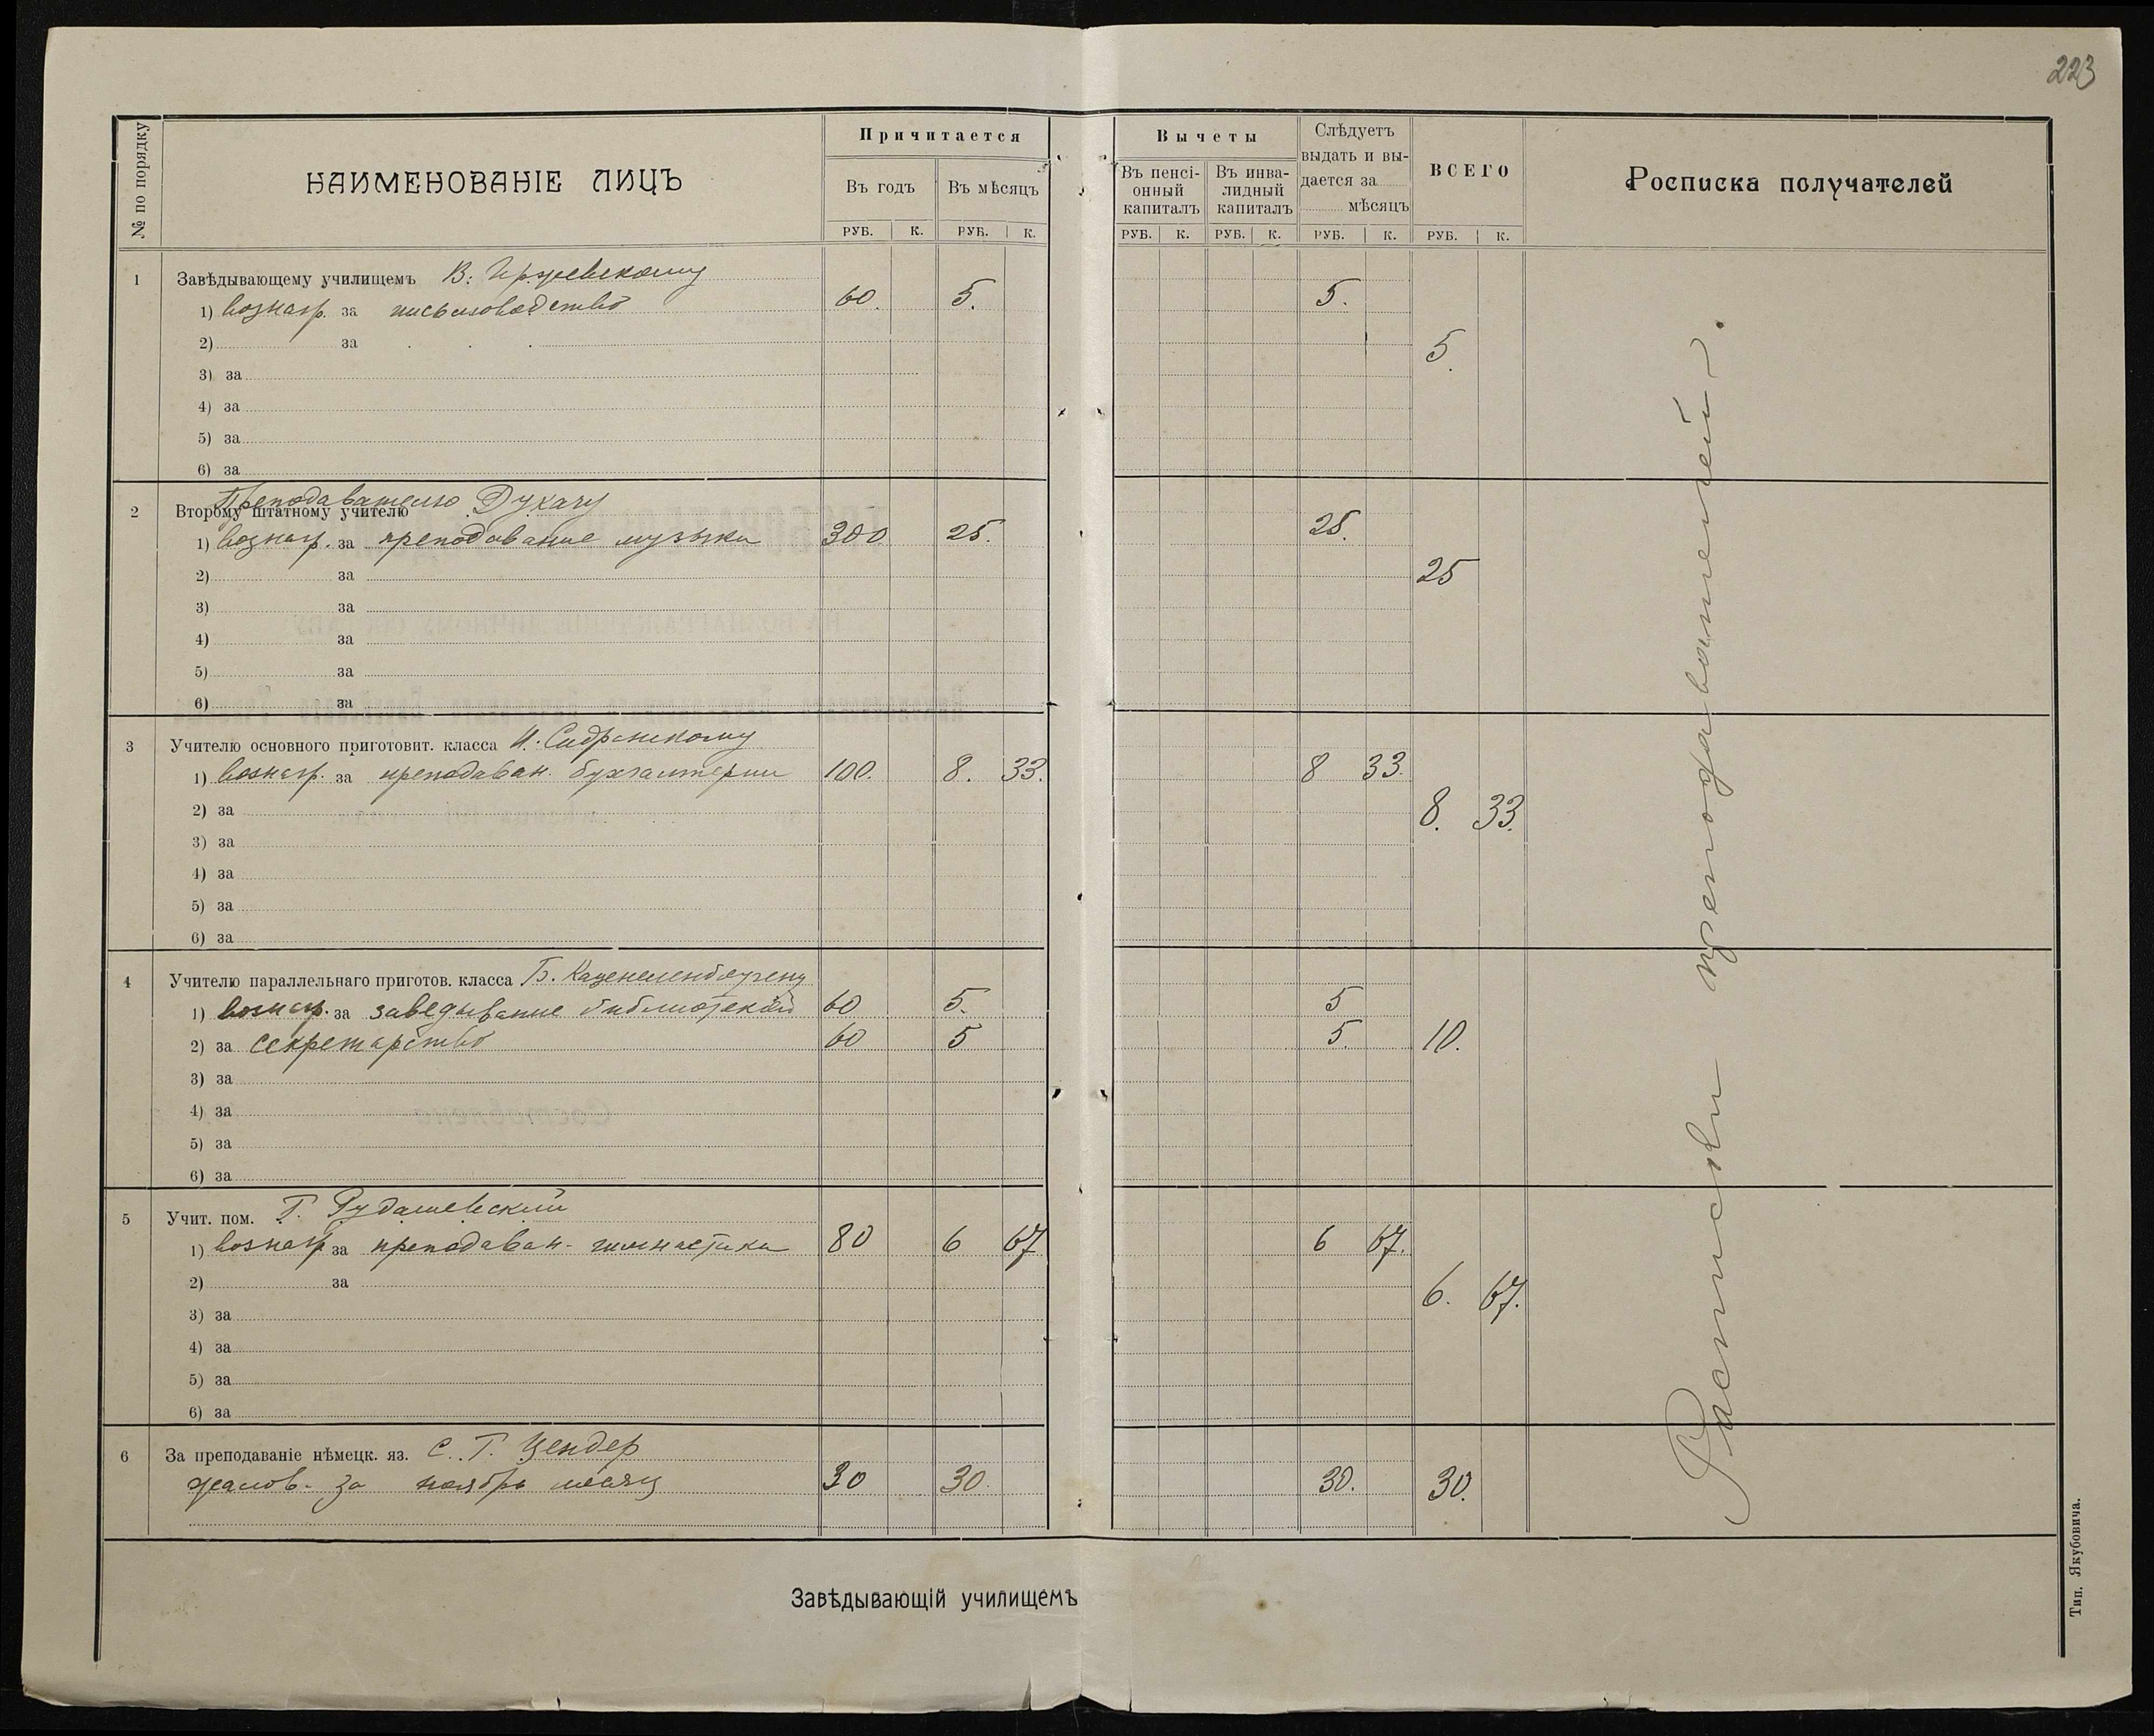 223
№ по порядку
НАИМЕНОВАНІЕ ЛИЦЪ
Причитается
Въ годъ
Въ мѣсяцъ
РУБ. К. РУБ. К.
Вычеты
Въ пенсі-
онный
капиталъ
Въ инва-
лидный
капиталъ
Слѣдуетъ
выдать и вы-
дается за
мѣсяцъ
ВСЕГО
Росписка получателей
РУБ. К. РУБ. К. РУБ. К. РУБ. К.
1 Завѣдывающему училищемъ В.
1) вознагр. за письмоводство 60. 5. 5.
2) за
5.
3) за
4) за
5) за
6) за
Преподавателю Дукачу
2 Второму штатному учителю
1) вознагр. за преподавание музыки 300 25. 25.
2) за 25
3) за
4) за
5) за
6) за
3 Учителю основного приготовит. класса И.
1) вознагр. за преподаван. бухгалтерии 100. 8. 33. 8 33.
2) за 8. 33.
3) за
4) за
5) за
6) за
4 Учителю параллельнаго приготов. класса Б. Каценеленбогену
1) вознагр. за заведывание библиотекой 60 5. 5
2) за секретарство 60 5 5. 10.
3) за
4) за
5) за
6) за
5 Учит. пом. Г. Рудашевский
1) вознагр за преподаван. гимнастики 80 6 67 6 67.
2) за 6. 67.
3) за
4) за
5) за
6) за
6 За преподаваніе нѣмецк. яз. С. Г. Цендер
жалов. за ноябрь месяц 30 30. 30. 30.
Расписки преподавателей.
Завѣдывающій училищемъ
Тип. Якубовича.